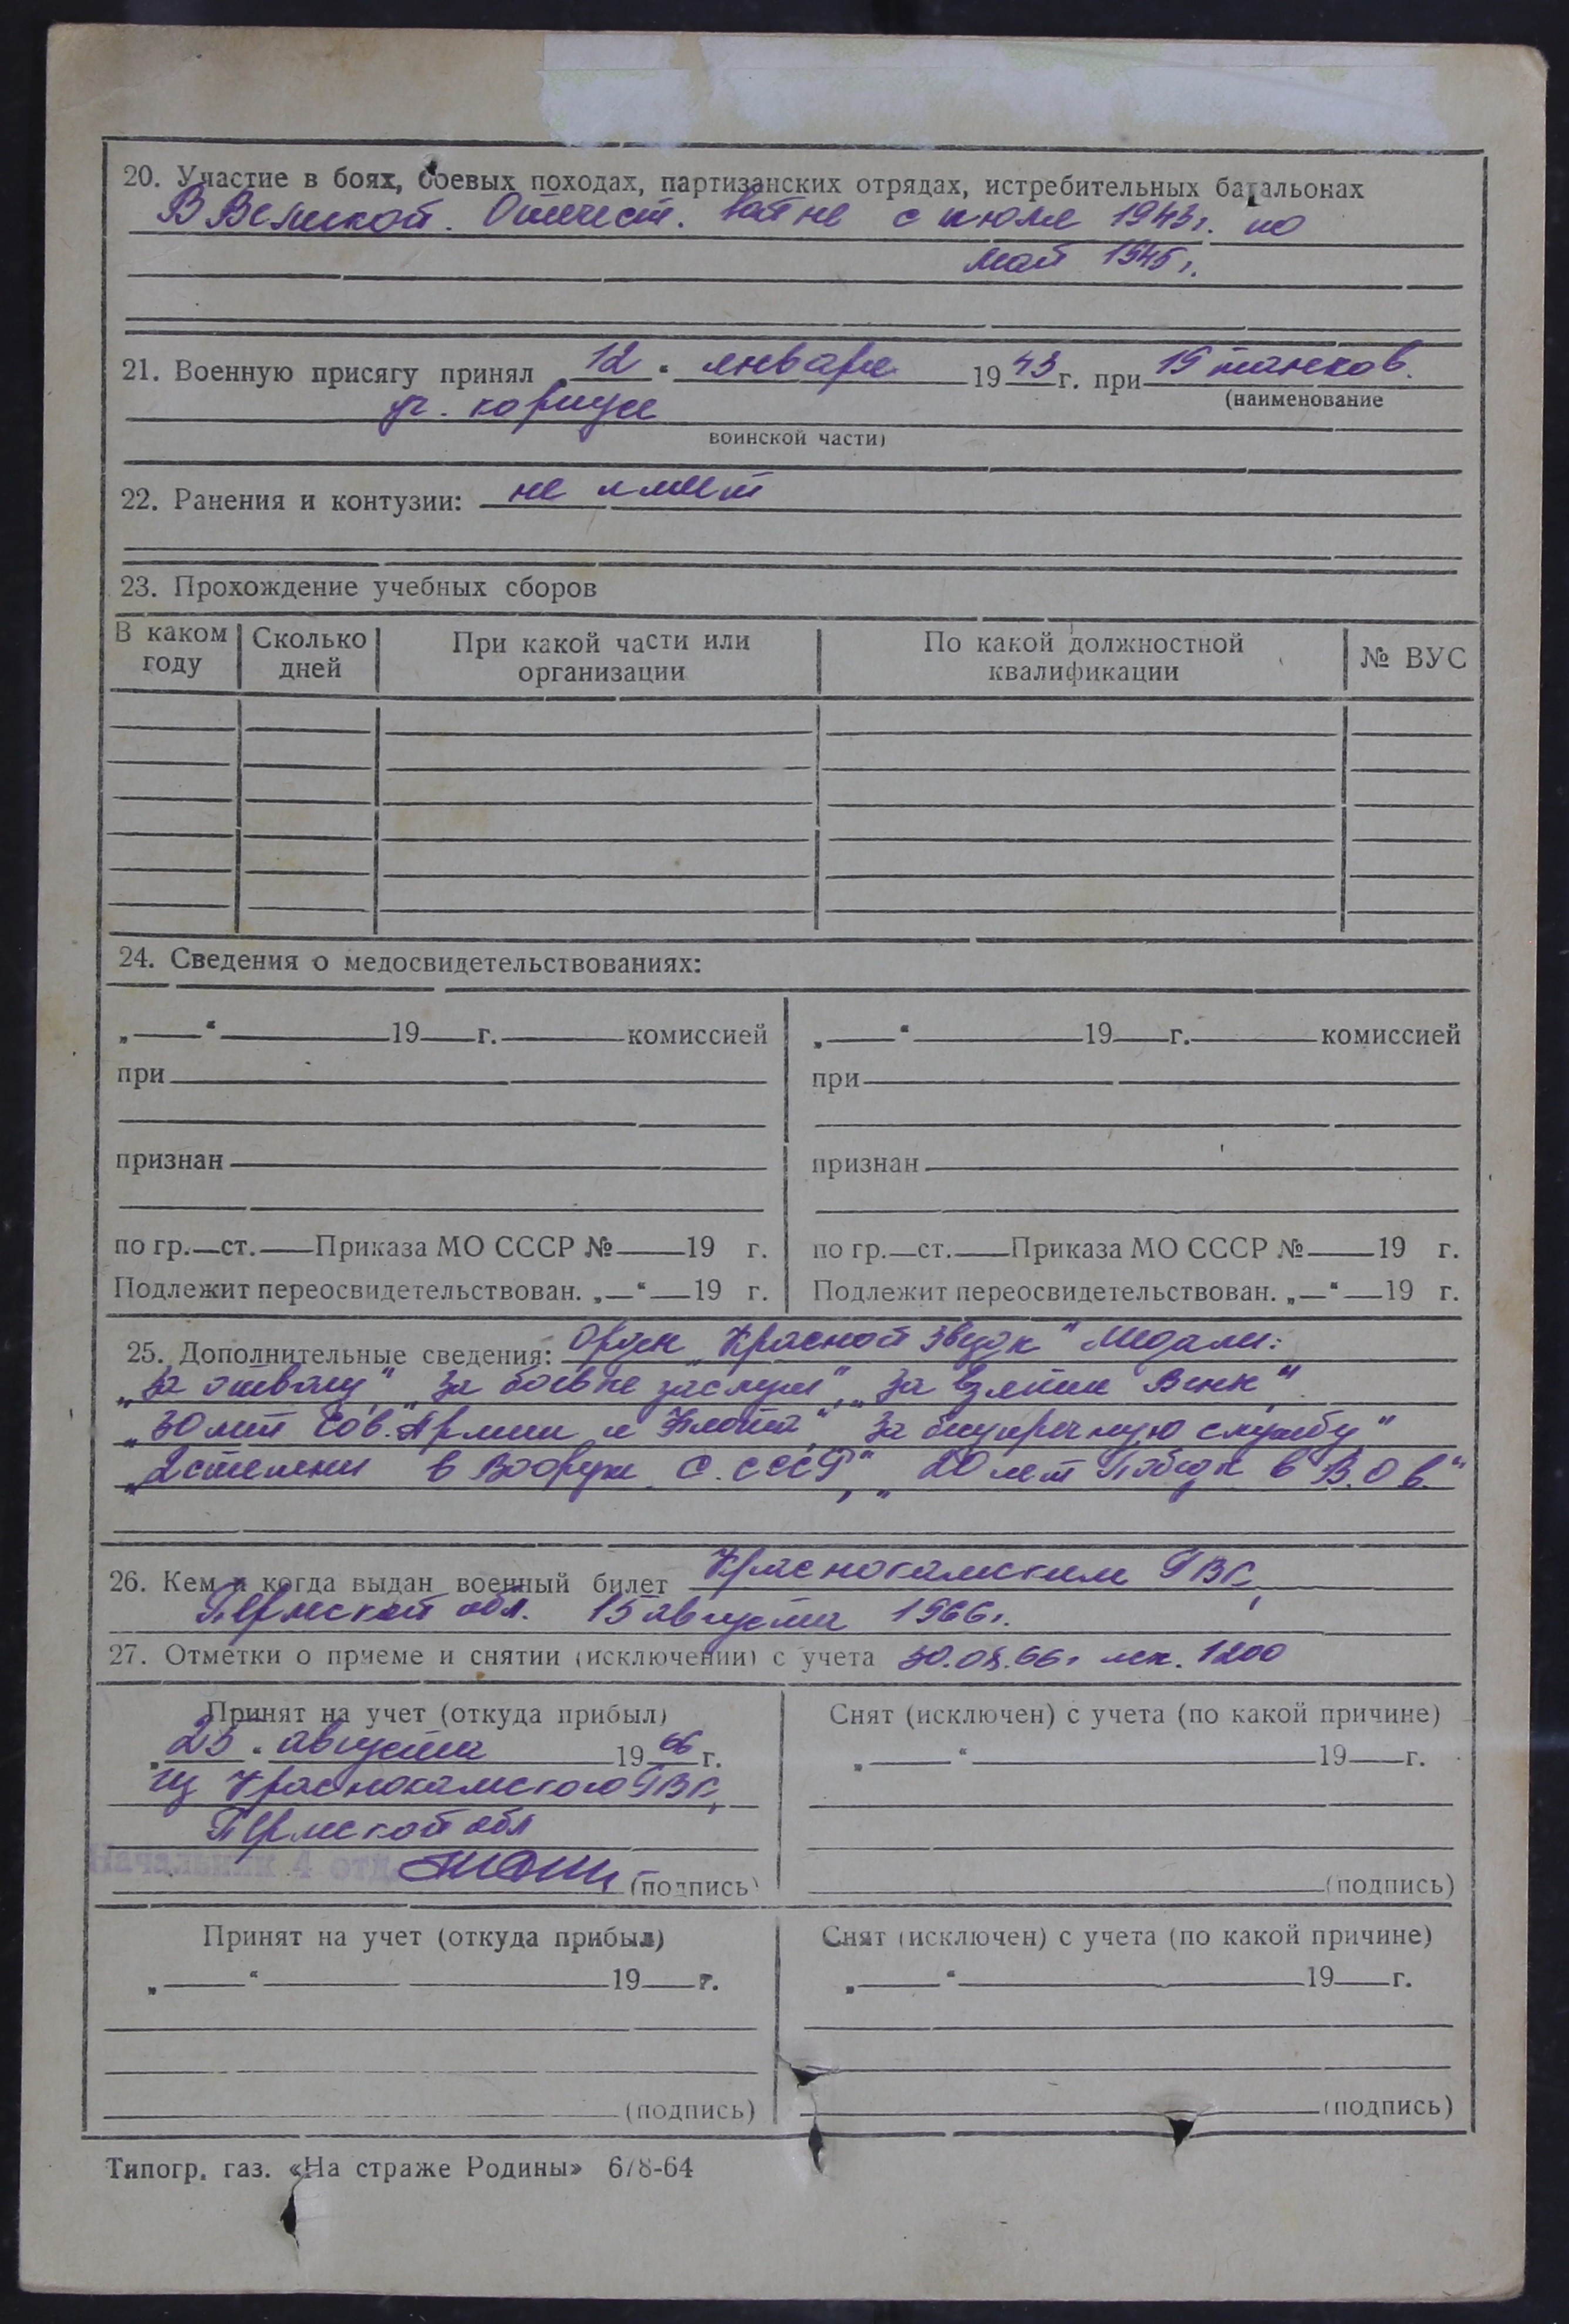 20. Участие в боях, боевых походах, партизанских отрядах, истребительных батальонах
В Великой. Отечест. войне с июля 1943г. по
май 1945г.
21. Военную присягу принял 12 " января 1943 г. при 19 танков.
(наименование
уч. корпусе
воинской части)
22. Ранения и контузии: не имеет
23. Прохождение учебных сборов
В каком году | Сколько дней | При какой части или организации | По какой должностной квалификации | № ВУС
24. Сведения о медосвидетельствованиях:
„ “ 19 г. комиссией
при
признан
по гр. ст. Приказа МО СССР № 19 г.
Подлежит переосвидетельствован. „ “ 19 г.
„ “ 19 г. комиссией
при
признан
по гр. ст. Приказа МО СССР № 19 г.
Подлежит переосвидетельствован. „ “ 19 г.
25. Дополнительные сведения: Орден „Красной Звезды" Медали:
„За отвагу" „За боевые заслуги", „За взятие Вены"
„30 лет Сов. Армии и Флота", „За безупречную службу"
„2 степени в Вооруж. С. СССР", „20 лет Победы в В.О в."
26. Кем и когда выдан военный билет Краснокамским ГВК,
Пермской обл. 15 августа 1966г.
27. Отметки о приеме и снятии (исключении) с учета 30.08.66г 1200
Принят на учет (откуда прибыл)
„25" августа 1966 г.
из Краснокамского ГВК,
Пермской обл
Начальник 4 отд.
(подпись)
Снят (исключен) с учета (по какой причине)
„ “ 19 г.
(подпись)
Принят на учет (откуда прибыл)
„ “ 19 г.
(подпись)
Снят (исключен) с учета (по какой причине)
„ “ 19 г.
(подпись)
Типогр. газ. «На страже Родины» 678-64